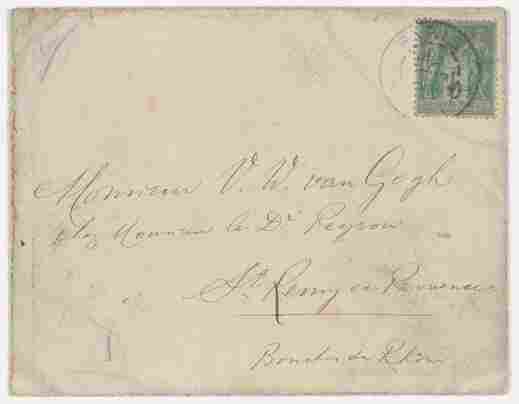 Monsieur V. W. van Gogh
chez Monsieur le Dr Peyron
St. Remy en Provence
Bouches du Rhône